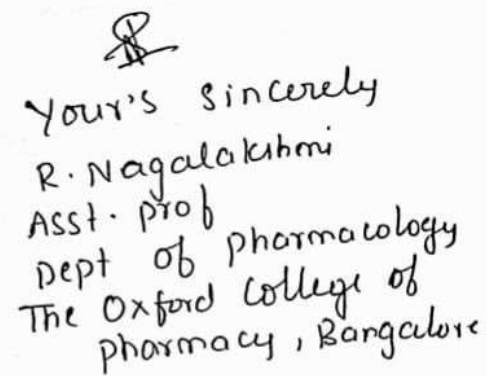 Your's sincerely
R. Nagalakshmi
Asst. prof
Dept of pharmacology
The Oxford College of
pharmacy, Bangalore